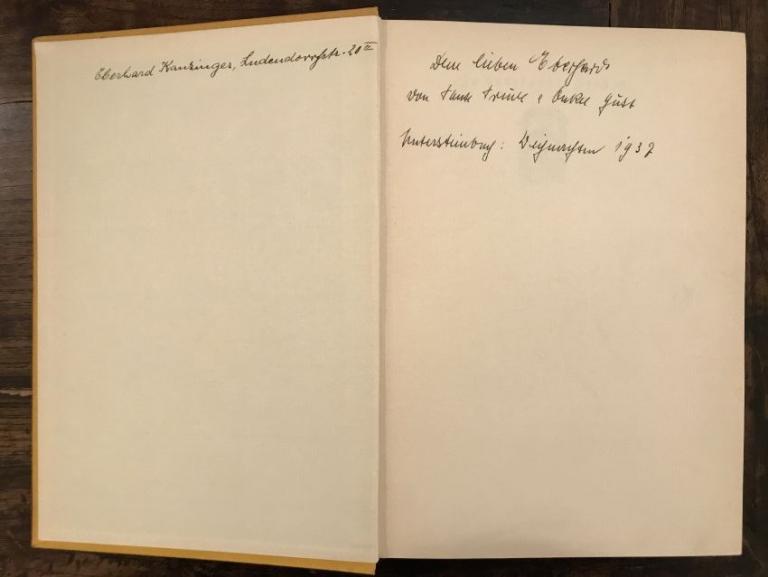 Eberhard Kanzinger, Ludendorffstr. 20 II
Dem lieben Eberhard
von Tante Trude & Onkel Gust
Untersteinbach: Weihnachten 1937